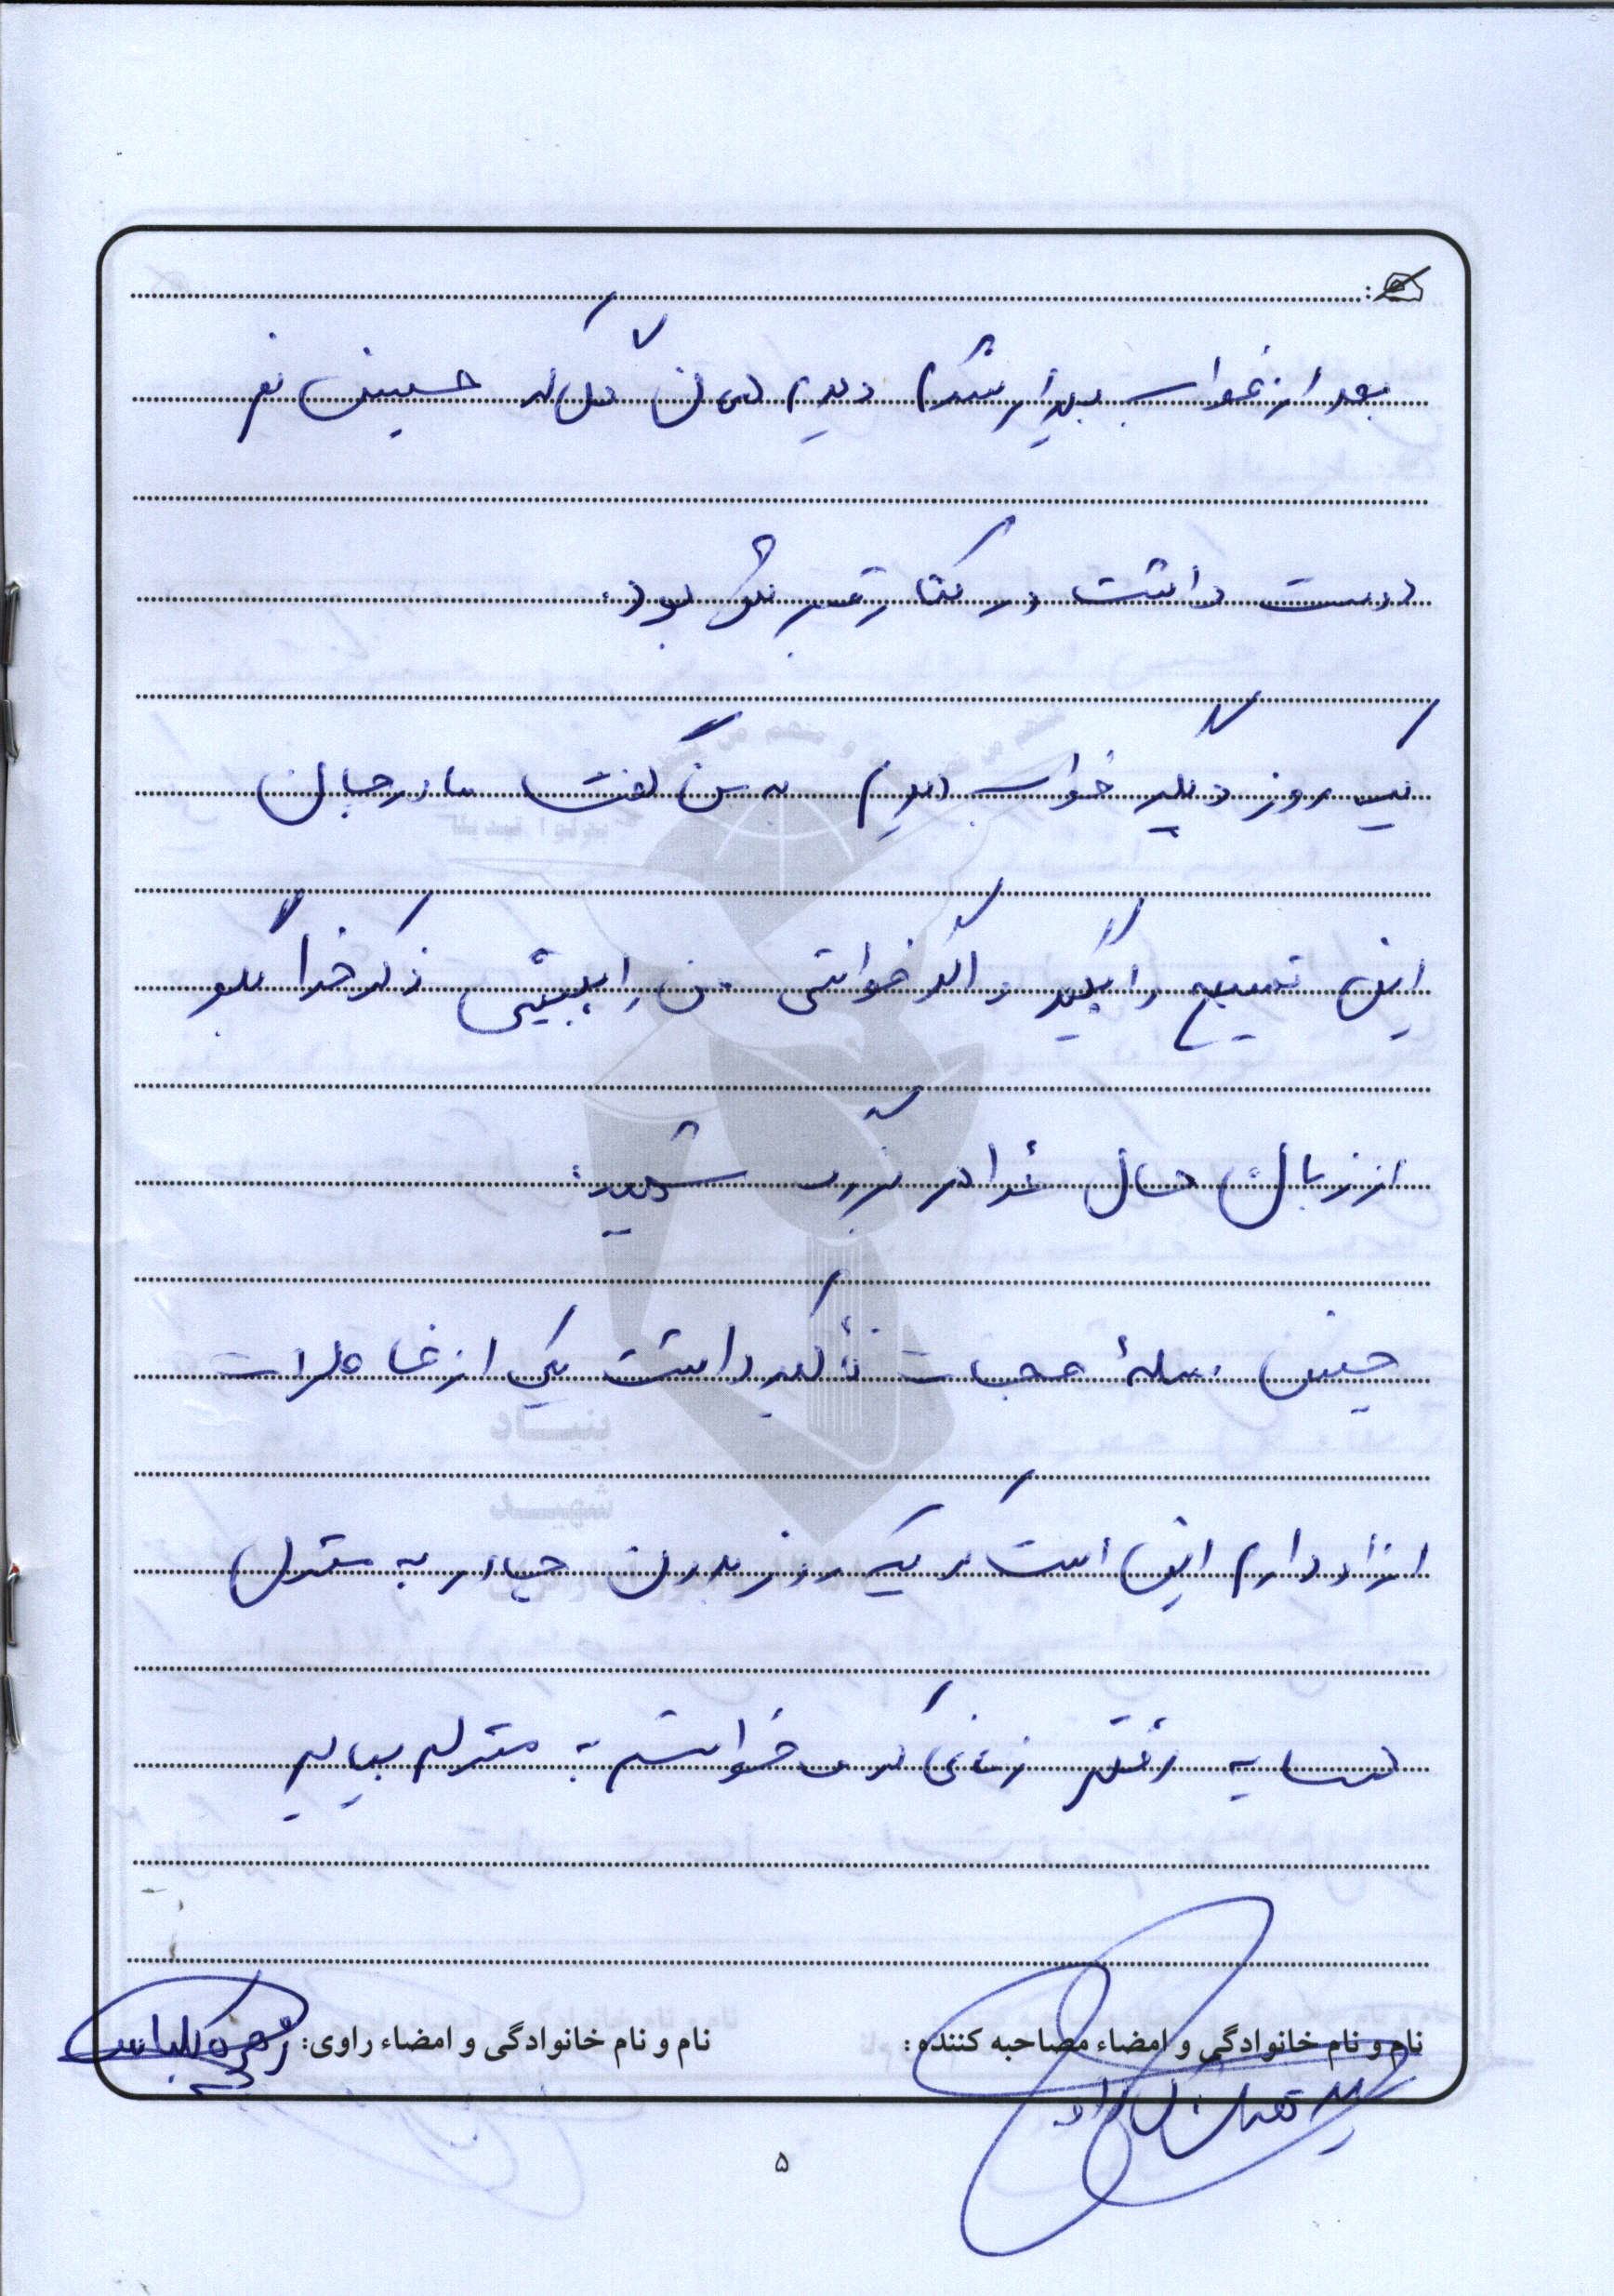 بعد از خواب بیدار شدم دیدم همان گل که حسین نفر
دست داشت در کنار قبرش بود.
یک روز دیگر خواب دیدم به من گفت مادر جان
این تسبیح را بگیر و اگر خواستی من را ببینی ذکر خدا بگو
از زبان حال خواهر بزرگ شهید:
حسین مسلهٔ حجاب تأکید داشت یکی از خاطرات
از او دارم این است که یک روز بدون چادر به منزل
همسایه رفتم زمانی که می خواستم به منزلم بیایم
نام و نام خانوادگی و امضاء مصاحبه کننده:
نام و نام خانوادگی و امضاء راوی:
۵